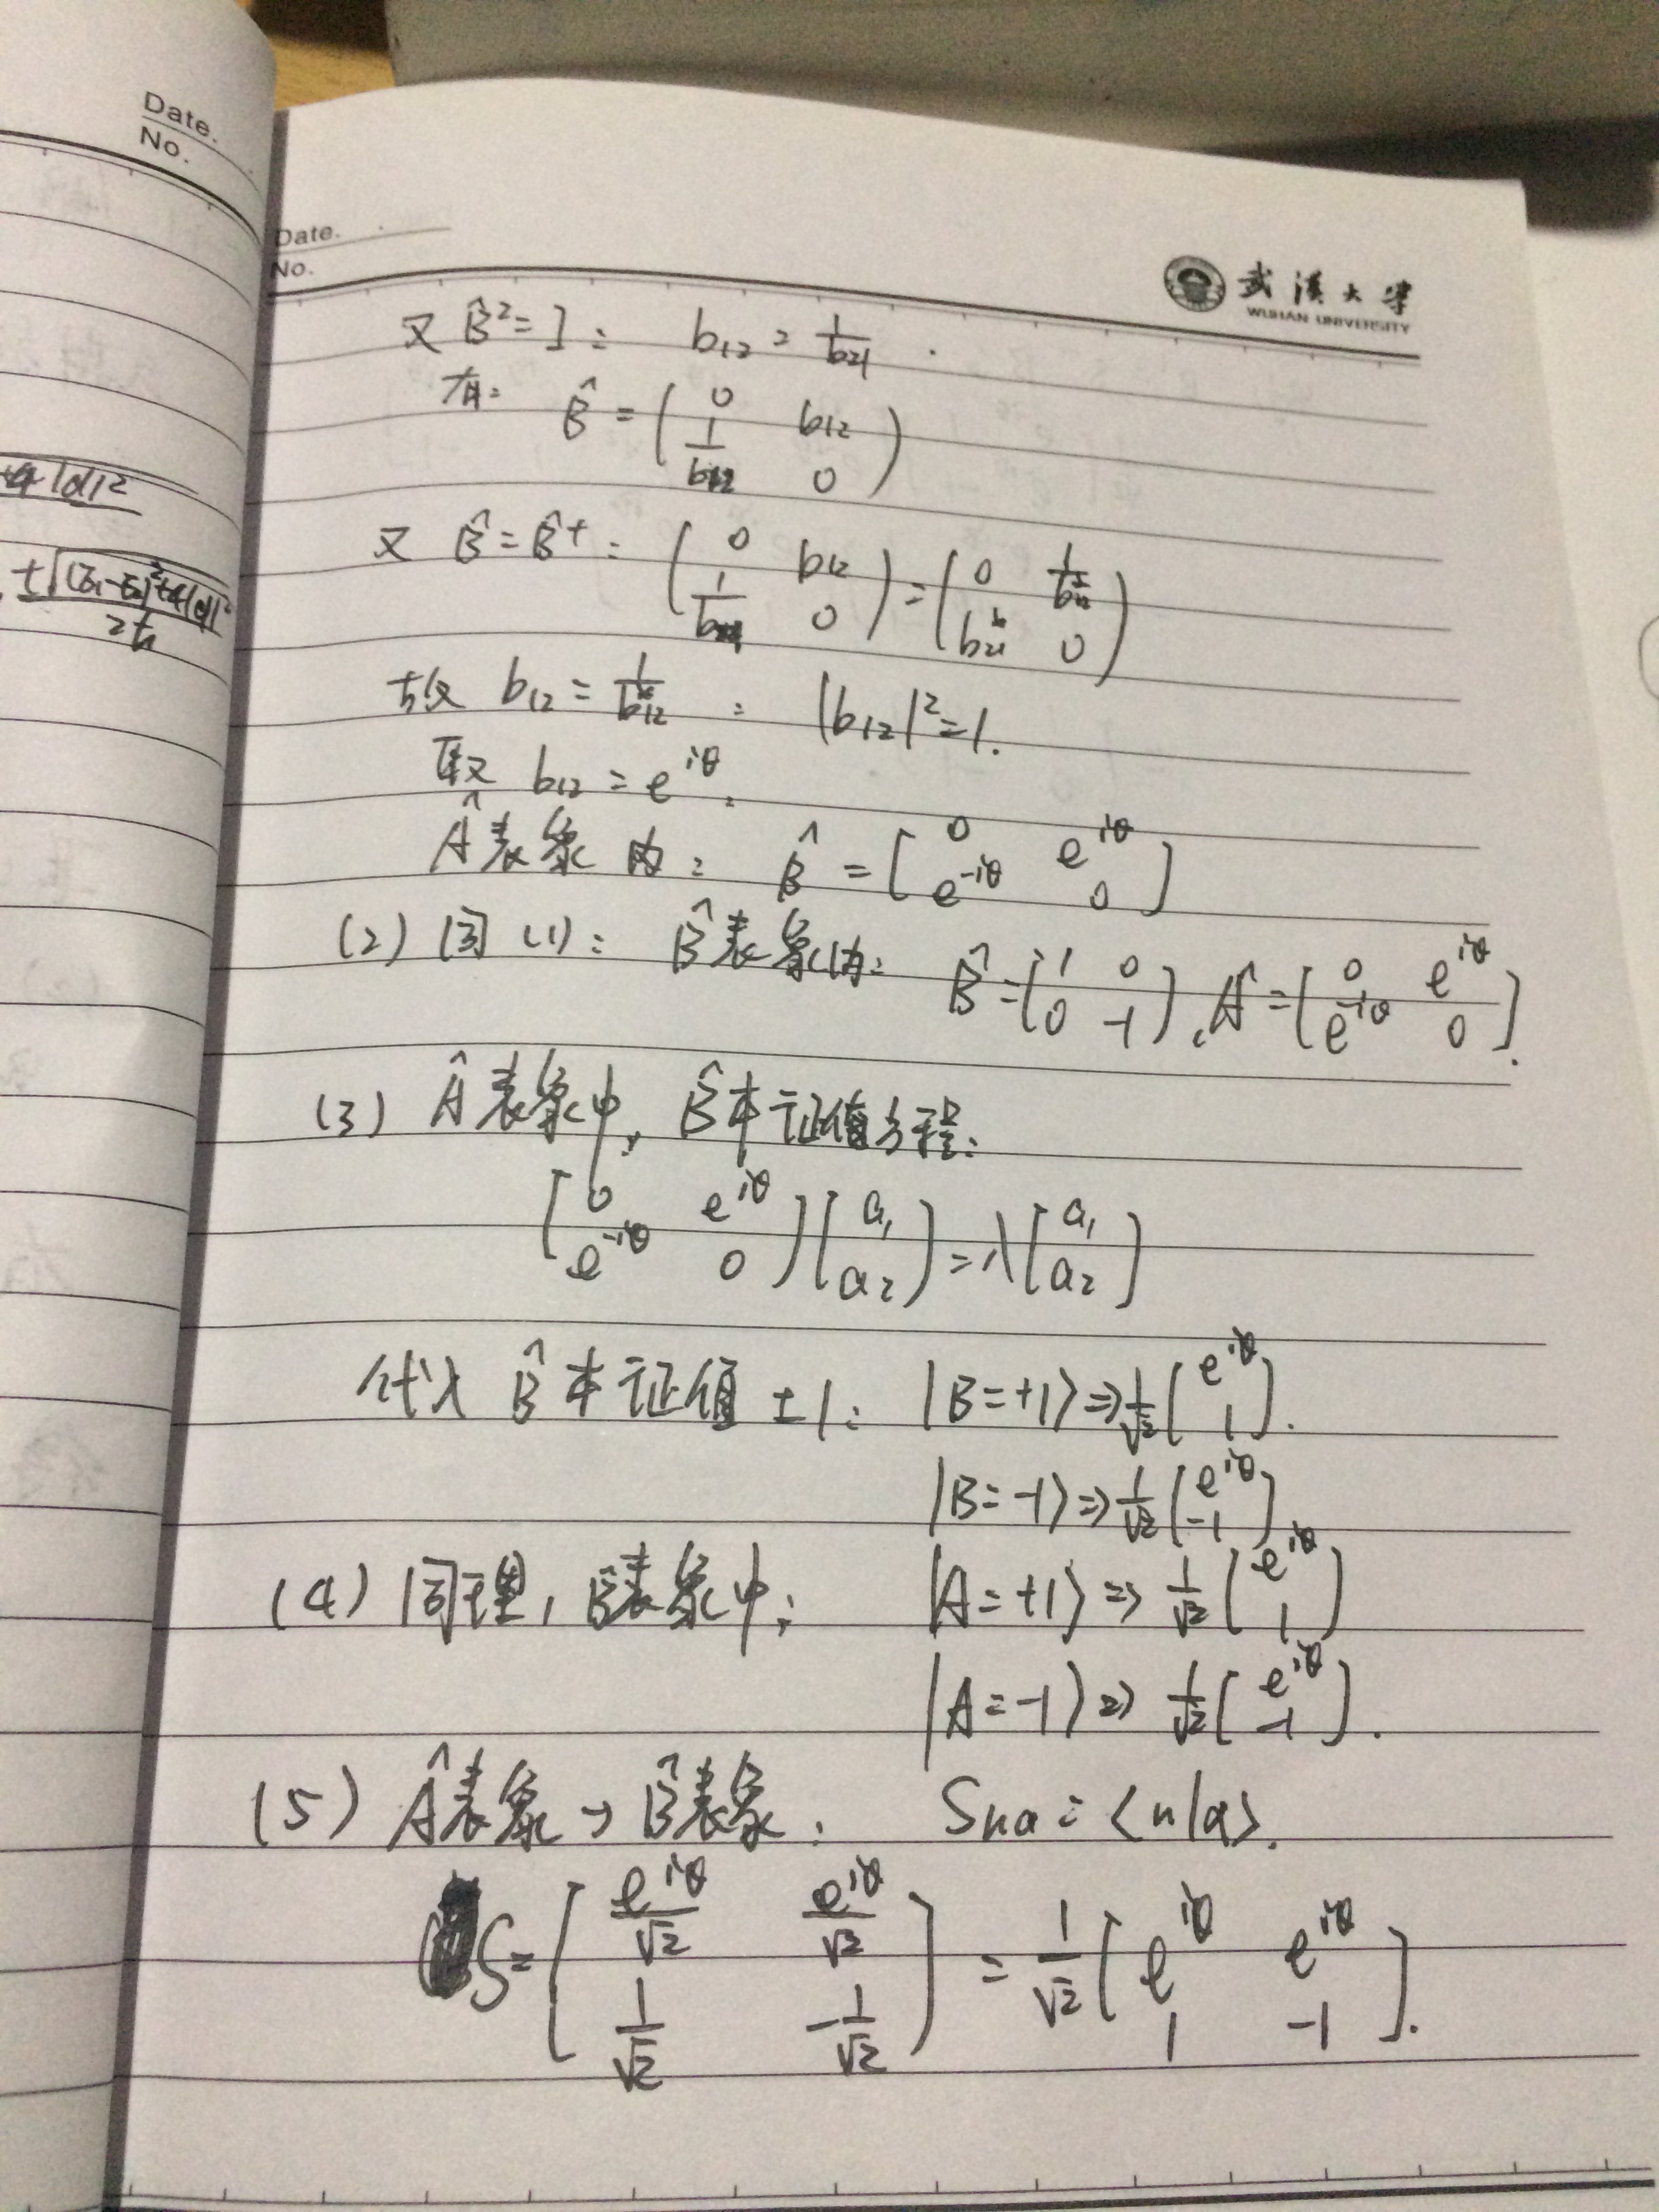 Date.
No.
+4|d|²
±√((E₁-E₂)²+4|d|²) / 2ħ
Date.
No.
武汉大学
WUHAN UNIVERSITY
又 B̂²=I: b₁₂ = 1/b₂₁.
有: B̂ = (0 b₁₂; 1/b₁₂ 0)
又 B̂=B̂⁺: (0 b₁₂; 1/b₁₂ 0) = (0 1/b₁₂*; b₁₂* 0)
故 b₁₂ = 1/b₁₂* : |b₁₂|²=1.
取 b₁₂ = e^{iθ}.
Â表象内: B̂ = [0 e^{iθ}; e^{-iθ} 0]
(2) 同(1): B̂表象内: B̂=[1 0; 0 -1], Â=[0 e^{iθ}; e^{-iθ} 0].
(3) Â表象中, B̂本证值方程:
[0 e^{iθ}; e^{-iθ} 0][a₁; a₂] = λ[a₁; a₂]
代入 B̂本证值 ±1: |B=+1⟩⇒1/√2 [e^{iθ}; 1].
|B=-1⟩⇒1/√2 [e^{iθ}; -1]
(4) 同理, B̂表象中: |A=+1⟩⇒ 1/√2 [e^{iθ}; 1]
|A=-1⟩⇒ 1/√2 [e^{iθ}; -1].
(5) Â表象→B̂表象: Snα = ⟨n|α⟩.
S = [e^{iθ}/√2 e^{iθ}/√2; 1/√2 -1/√2] = 1/√2 [e^{iθ} e^{iθ}; 1 -1].